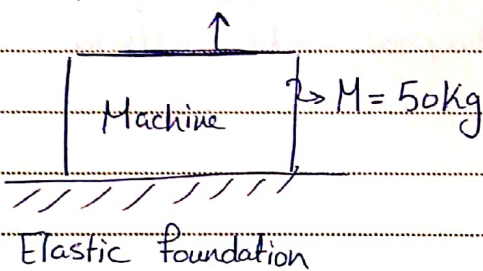 Machine
M = 50Kg
Elastic foundation